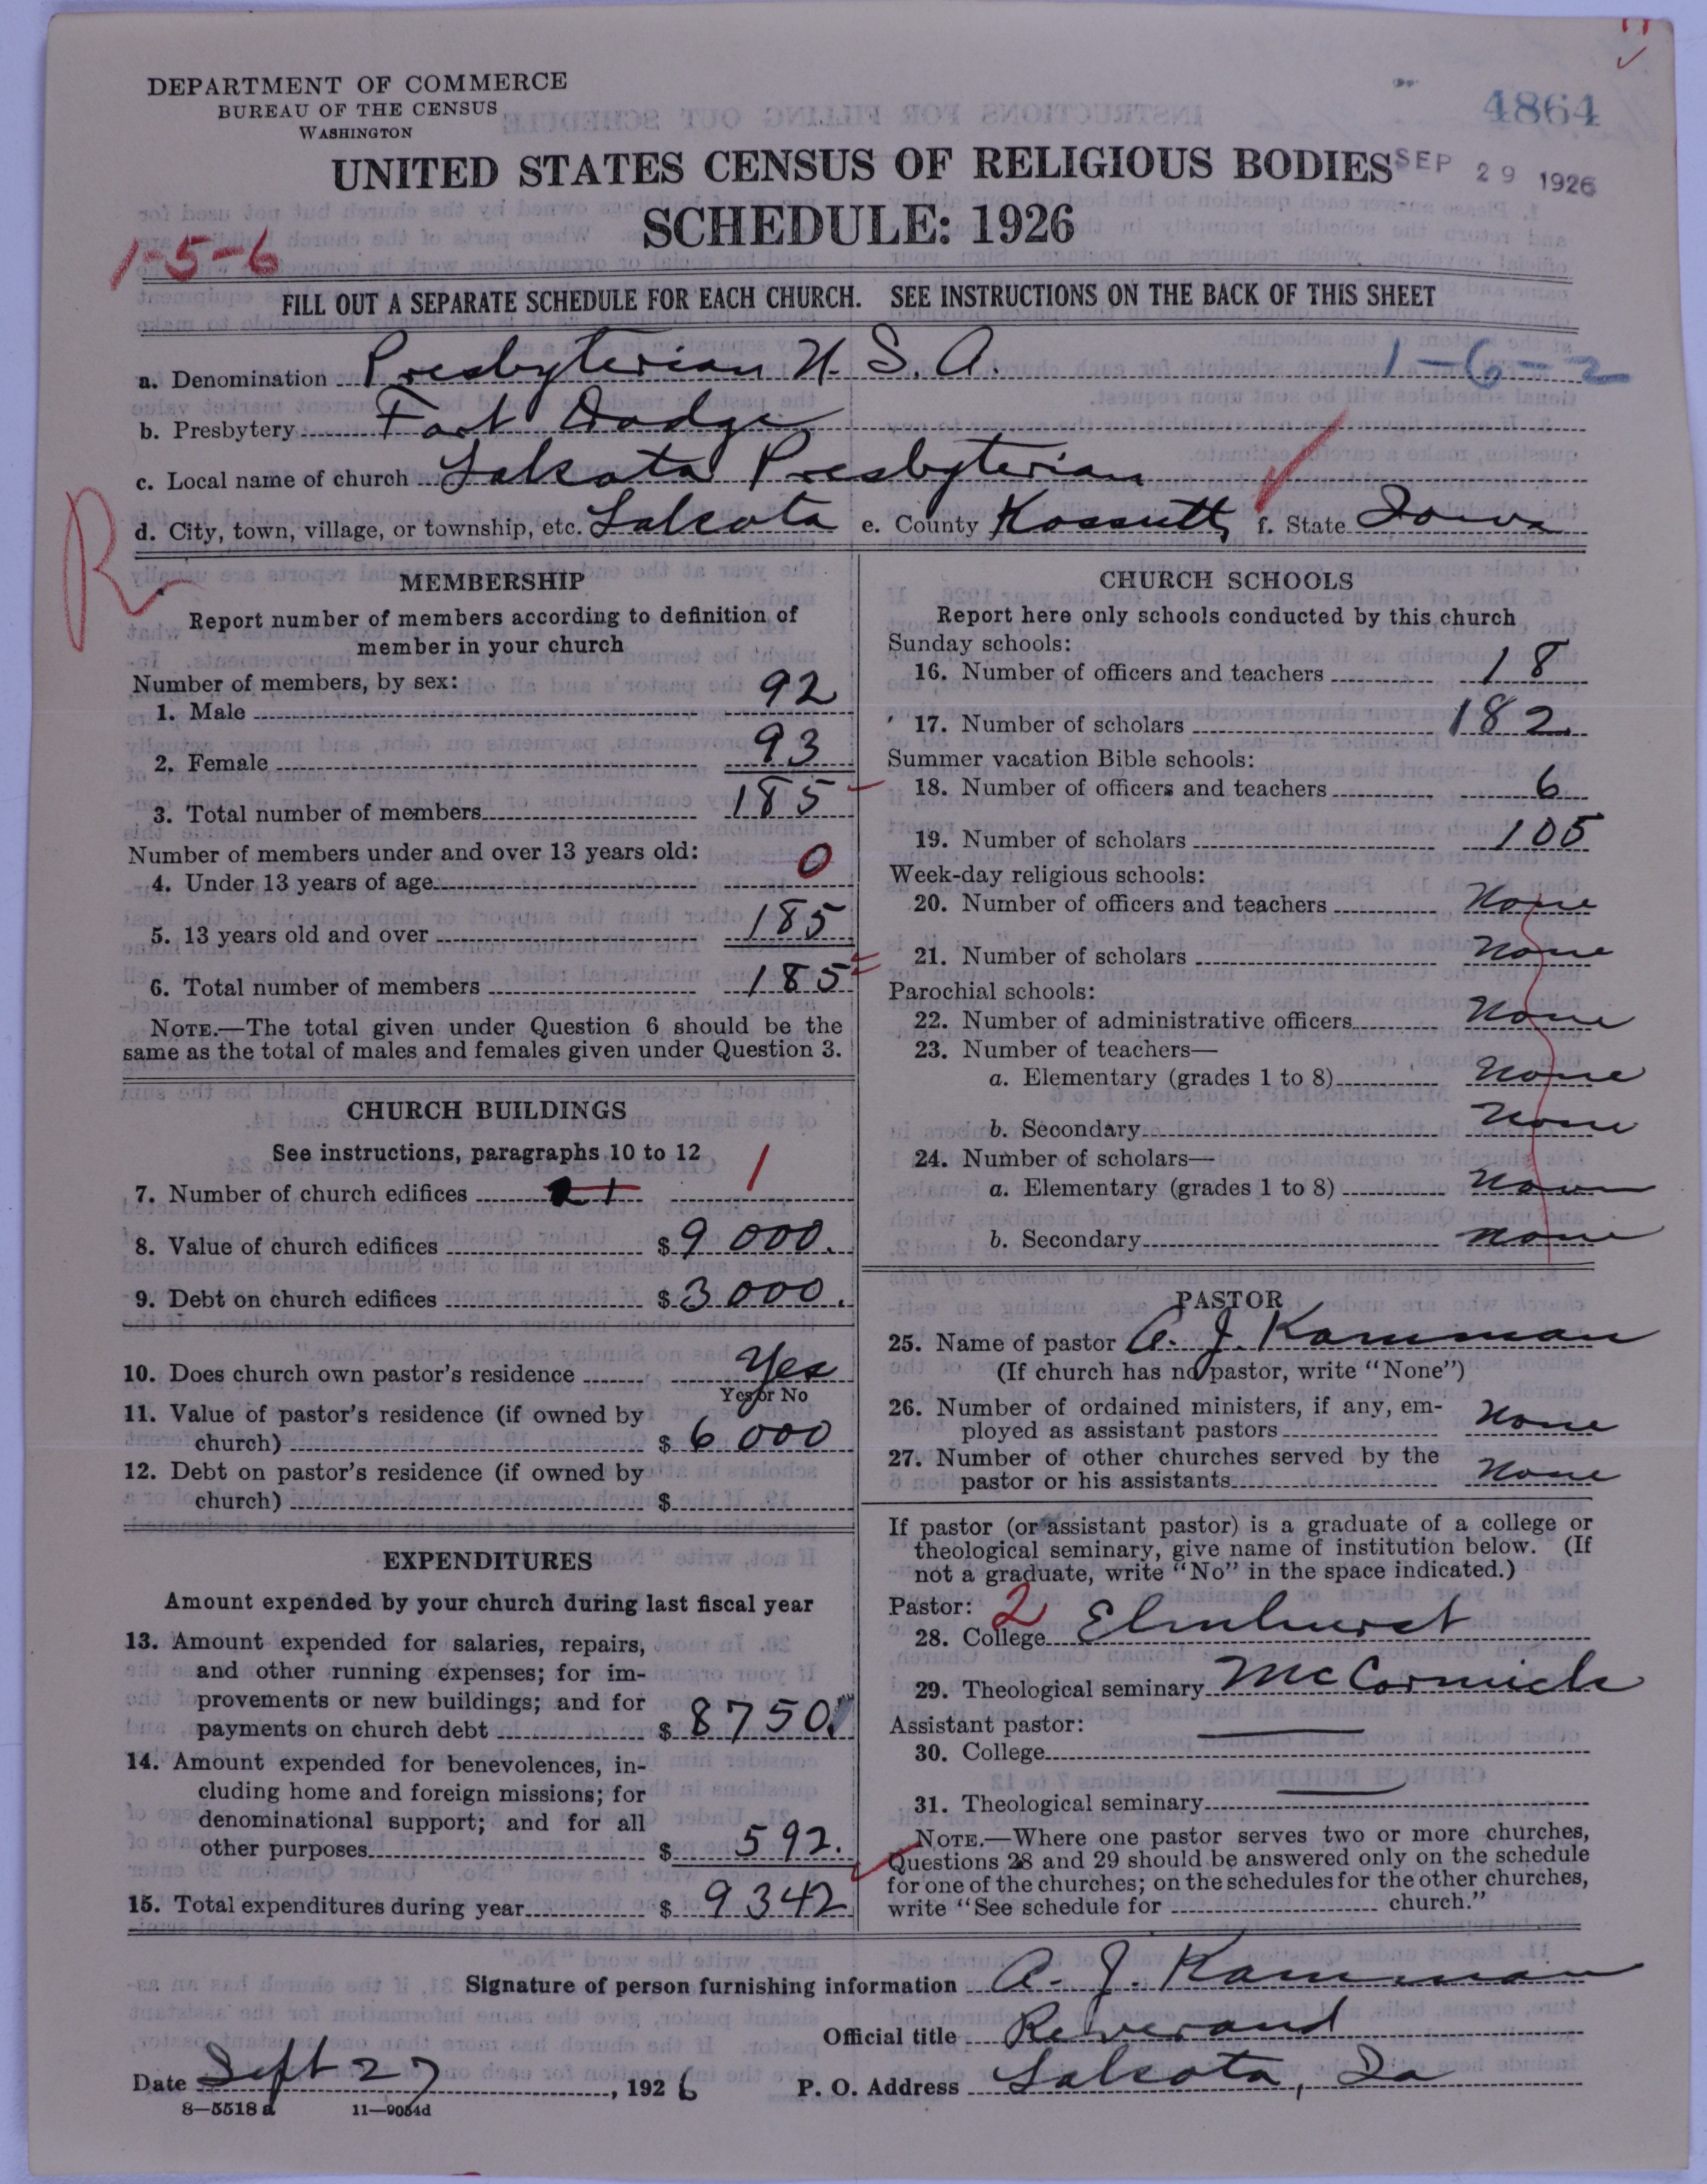 DEPARTMENT OF COMMERCE
BUREAU OF THE CENSUS
WASHINGTON
4864
UNITED STATES CENSUS OF RELIGIOUS BODIES
SEP 29 1926
SCHEDULE: 1926
1-5-6
FILL OUT A SEPARATE SCHEDULE FOR EACH CHURCH. SEE INSTRUCTIONS ON THE BACK OF THIS SHEET
a. Denomination Presbyterian U. S. A. 1-6-2
b. Presbytery Fort Dodge
c. Local name of church Lakota Presbyterian
d. City, town, village, or township, etc. Lakota e. County Kossuth f. State Iowa
R
MEMBERSHIP
Report number of members according to definition of
member in your church
Number of members, by sex:
1. Male 92
2. Female 93
3. Total number of members 185
Number of members under and over 13 years old:
4. Under 13 years of age 0
5. 13 years old and over 185
6. Total number of members 185
NOTE.—The total given under Question 6 should be the
same as the total of males and females given under Question 3.
CHURCH BUILDINGS
See instructions, paragraphs 10 to 12
7. Number of church edifices 1 1
8. Value of church edifices $ 9 000.
9. Debt on church edifices $ 3 000.
10. Does church own pastor's residence Yes
Yes or No
11. Value of pastor's residence (if owned by
church) $ 6 000
12. Debt on pastor's residence (if owned by
church) $
EXPENDITURES
Amount expended by your church during last fiscal year
13. Amount expended for salaries, repairs,
and other running expenses; for im-
provements or new buildings; and for
payments on church debt $ 8750.
14. Amount expended for benevolences, in-
cluding home and foreign missions; for
denominational support; and for all
other purposes $ 592.
15. Total expenditures during year $ 9342
CHURCH SCHOOLS
Report here only schools conducted by this church
Sunday schools:
16. Number of officers and teachers 18
17. Number of scholars 182
Summer vacation Bible schools:
18. Number of officers and teachers 6
19. Number of scholars 105
Week-day religious schools:
20. Number of officers and teachers None
21. Number of scholars None
Parochial schools:
22. Number of administrative officers None
23. Number of teachers—
a. Elementary (grades 1 to 8) None
b. Secondary None
24. Number of scholars—
a. Elementary (grades 1 to 8) None
b. Secondary None
PASTOR
25. Name of pastor A. J. Kamman
(If church has no pastor, write "None")
26. Number of ordained ministers, if any, em-
ployed as assistant pastors None
27. Number of other churches served by the
pastor or his assistants None
If pastor (or assistant pastor) is a graduate of a college or
theological seminary, give name of institution below. (If
not a graduate, write "No" in the space indicated.)
Pastor: 2
28. College Elmhurst
29. Theological seminary McCormick
Assistant pastor:
30. College
31. Theological seminary
NOTE.—Where one pastor serves two or more churches,
Questions 28 and 29 should be answered only on the schedule
for one of the churches; on the schedules for the other churches,
write "See schedule for church."
Signature of person furnishing information A. J. Kamman
Official title Reverand
Date Sept 27, 1926 P. O. Address Lakota, Ia
8—5518 a 11—9054d